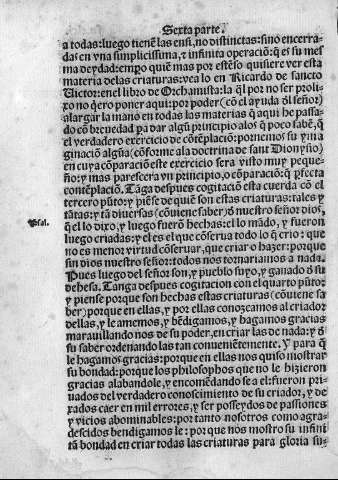 Sexta parte.
a todas: luego tienẽ las ensi, no distinctas: sino encerra-
das en vna simplicissima, ⁊ infinita operaciõ: q̃ es su mes
ma deydad: empo quiẽ mas por estẽso quisiere ver esta
materia delas criaturas: vea lo en Ricardo de sancto
Uictor: en el libro de Orchamista: la q̃l por no ser proli-
xo no q̃ero poner aqui: por poder (cõ el ayuda ðl señor)
alargar la mano en todas las materias q̃ aqui he passa-
do cõ breuedad pa dar algũ principio alos q̃ poco sabẽ, q̃
el verdadero exercicio de cõtẽplaciõ: pornemos su yma
ginaciõ algũa (cõforme ala doctrina de sant Dionysio)
en cuya cõparaciõ este exercicio sera visto muy peque-
ño: y mas parescera vn principio, o cõparaciõ: q̃ pfecta
contẽplaciõ. Taga despues cogitaciõ esta cuerda cõ el
tercero pũto: y piẽse de quiẽ son estas criaturas: tales y
tãtas: y tã diuersas (cõuiene saber) ð nuestro señor dios,
Psal.
q̃ el lo dixo, y luego fuerõ hechas: el lo mãdo, y fueron
luego criadas: y el es el que cõserua todo lo q̃ crio: que
no es menor virtud cõseruar, que criar o hazer: porque
sin dios nuestro señor: todos nos tornariamos a nada.
Pues luego del señor son, y pueblo suyo, y ganado ð su
dehesa. Tanga despues cogitacion con el quarto pũto:
y piense porque son hechas estas criaturas (cõuiene sa
ber) porque en ellas, y por ellas conozcamos al criador
dellas, y le amemos, y bẽdigamos, y hagamos gracias
marauillando nos de su poder, en criar las de nada: y ð
su saber ordenando las tan conuenientemente. Y para q̃
le hagamos gracias: porque en ellas nos quiso mostrar
su bondad: porque los philosophos que no le hizieron
gracias alabandole, y encomẽdando se a el: fueron pri-
uados del verdadero conoscimiento de su criador, y de-
xados caer en mil errores, y ser posseydos de passiones
y vicios abominables: por tanto nosotros como agra-
descidos bendigamos le: por que nos mostro su infini
tã bondad en criar todas las criaturas para gloria su-